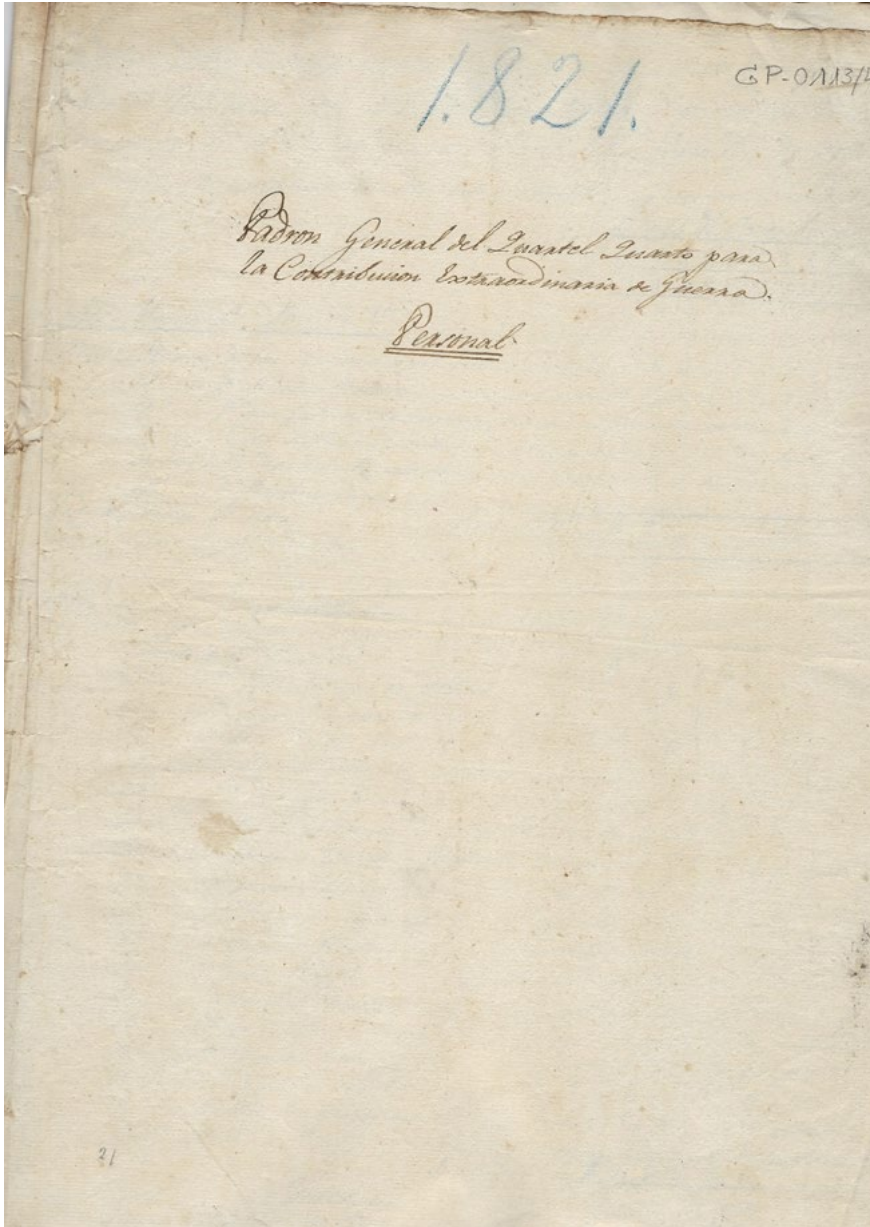 1.821.
GP-0113/
Padron General del Quartel Quarto para
la Contribucion Extraordinaria de Guerra.
Personal
21